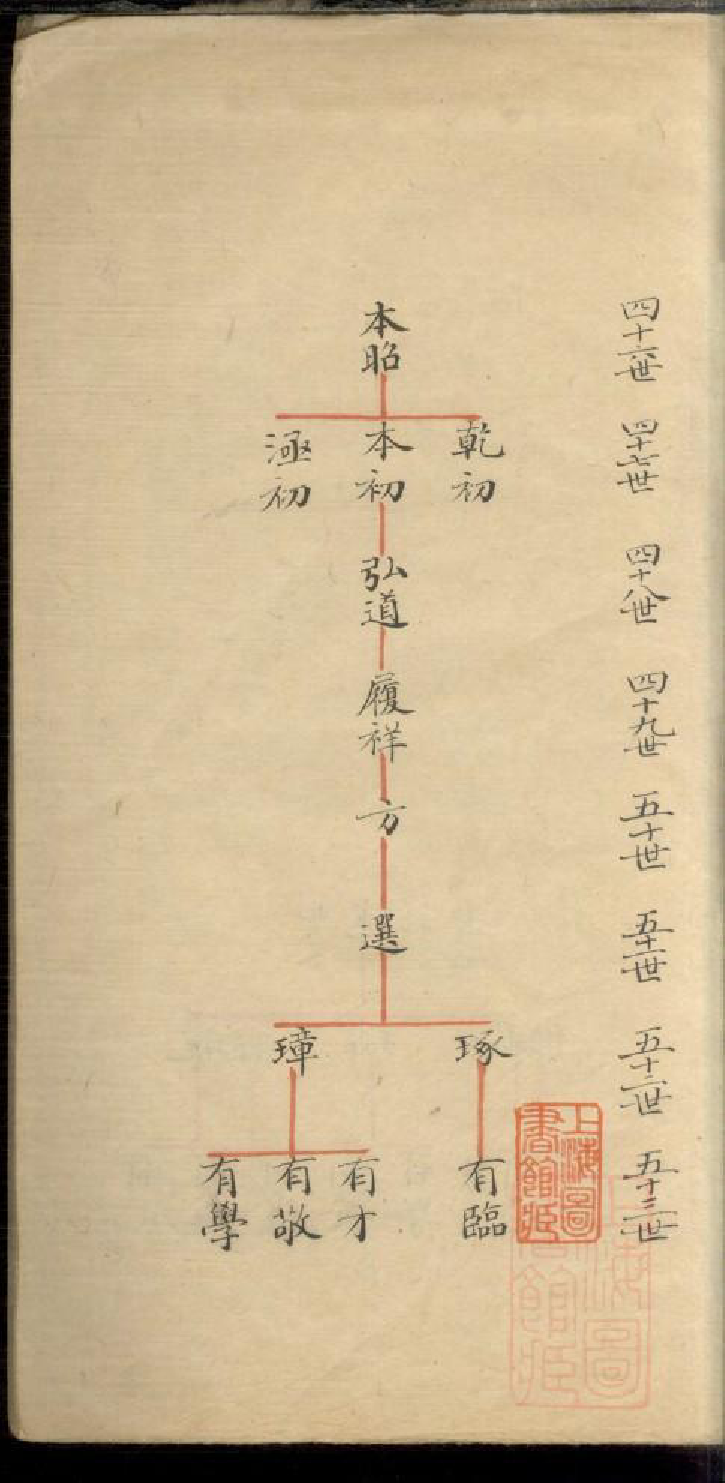 四十六世 四十七世 四十八世 四十九世 五十世 五十一世 五十二世 五十三世
本昭
乾初
本初
極初
弘道
履祥
方
選
琢
璋
有臨
有才
有敬
有學
上海圖
書館藏
上海圖
書館藏